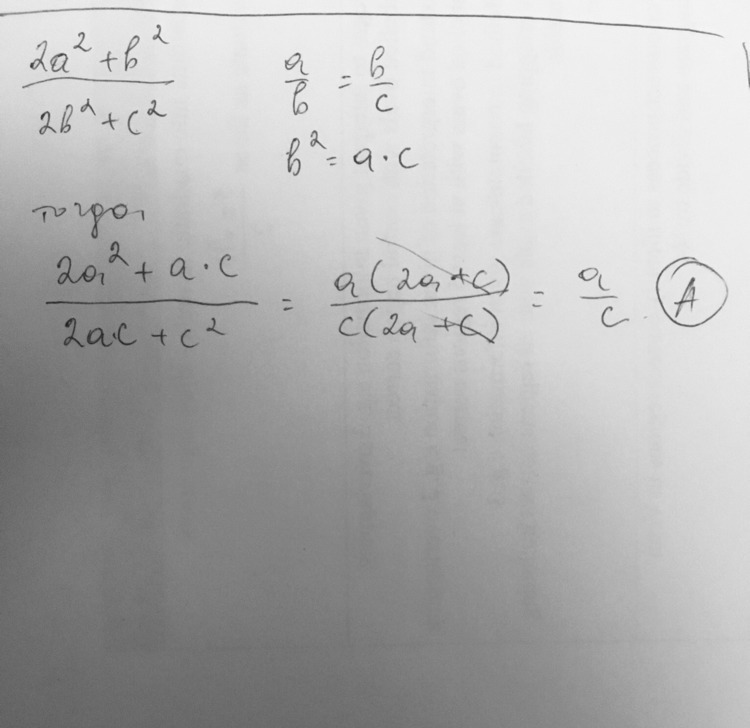 (2a² + b²) / (2b² + c²)    a/b = b/c
b² = a · c
тогда
(2a² + a · c) / (2a·c + c²) = a(2a + c) / c(2a + c) = a/c. A